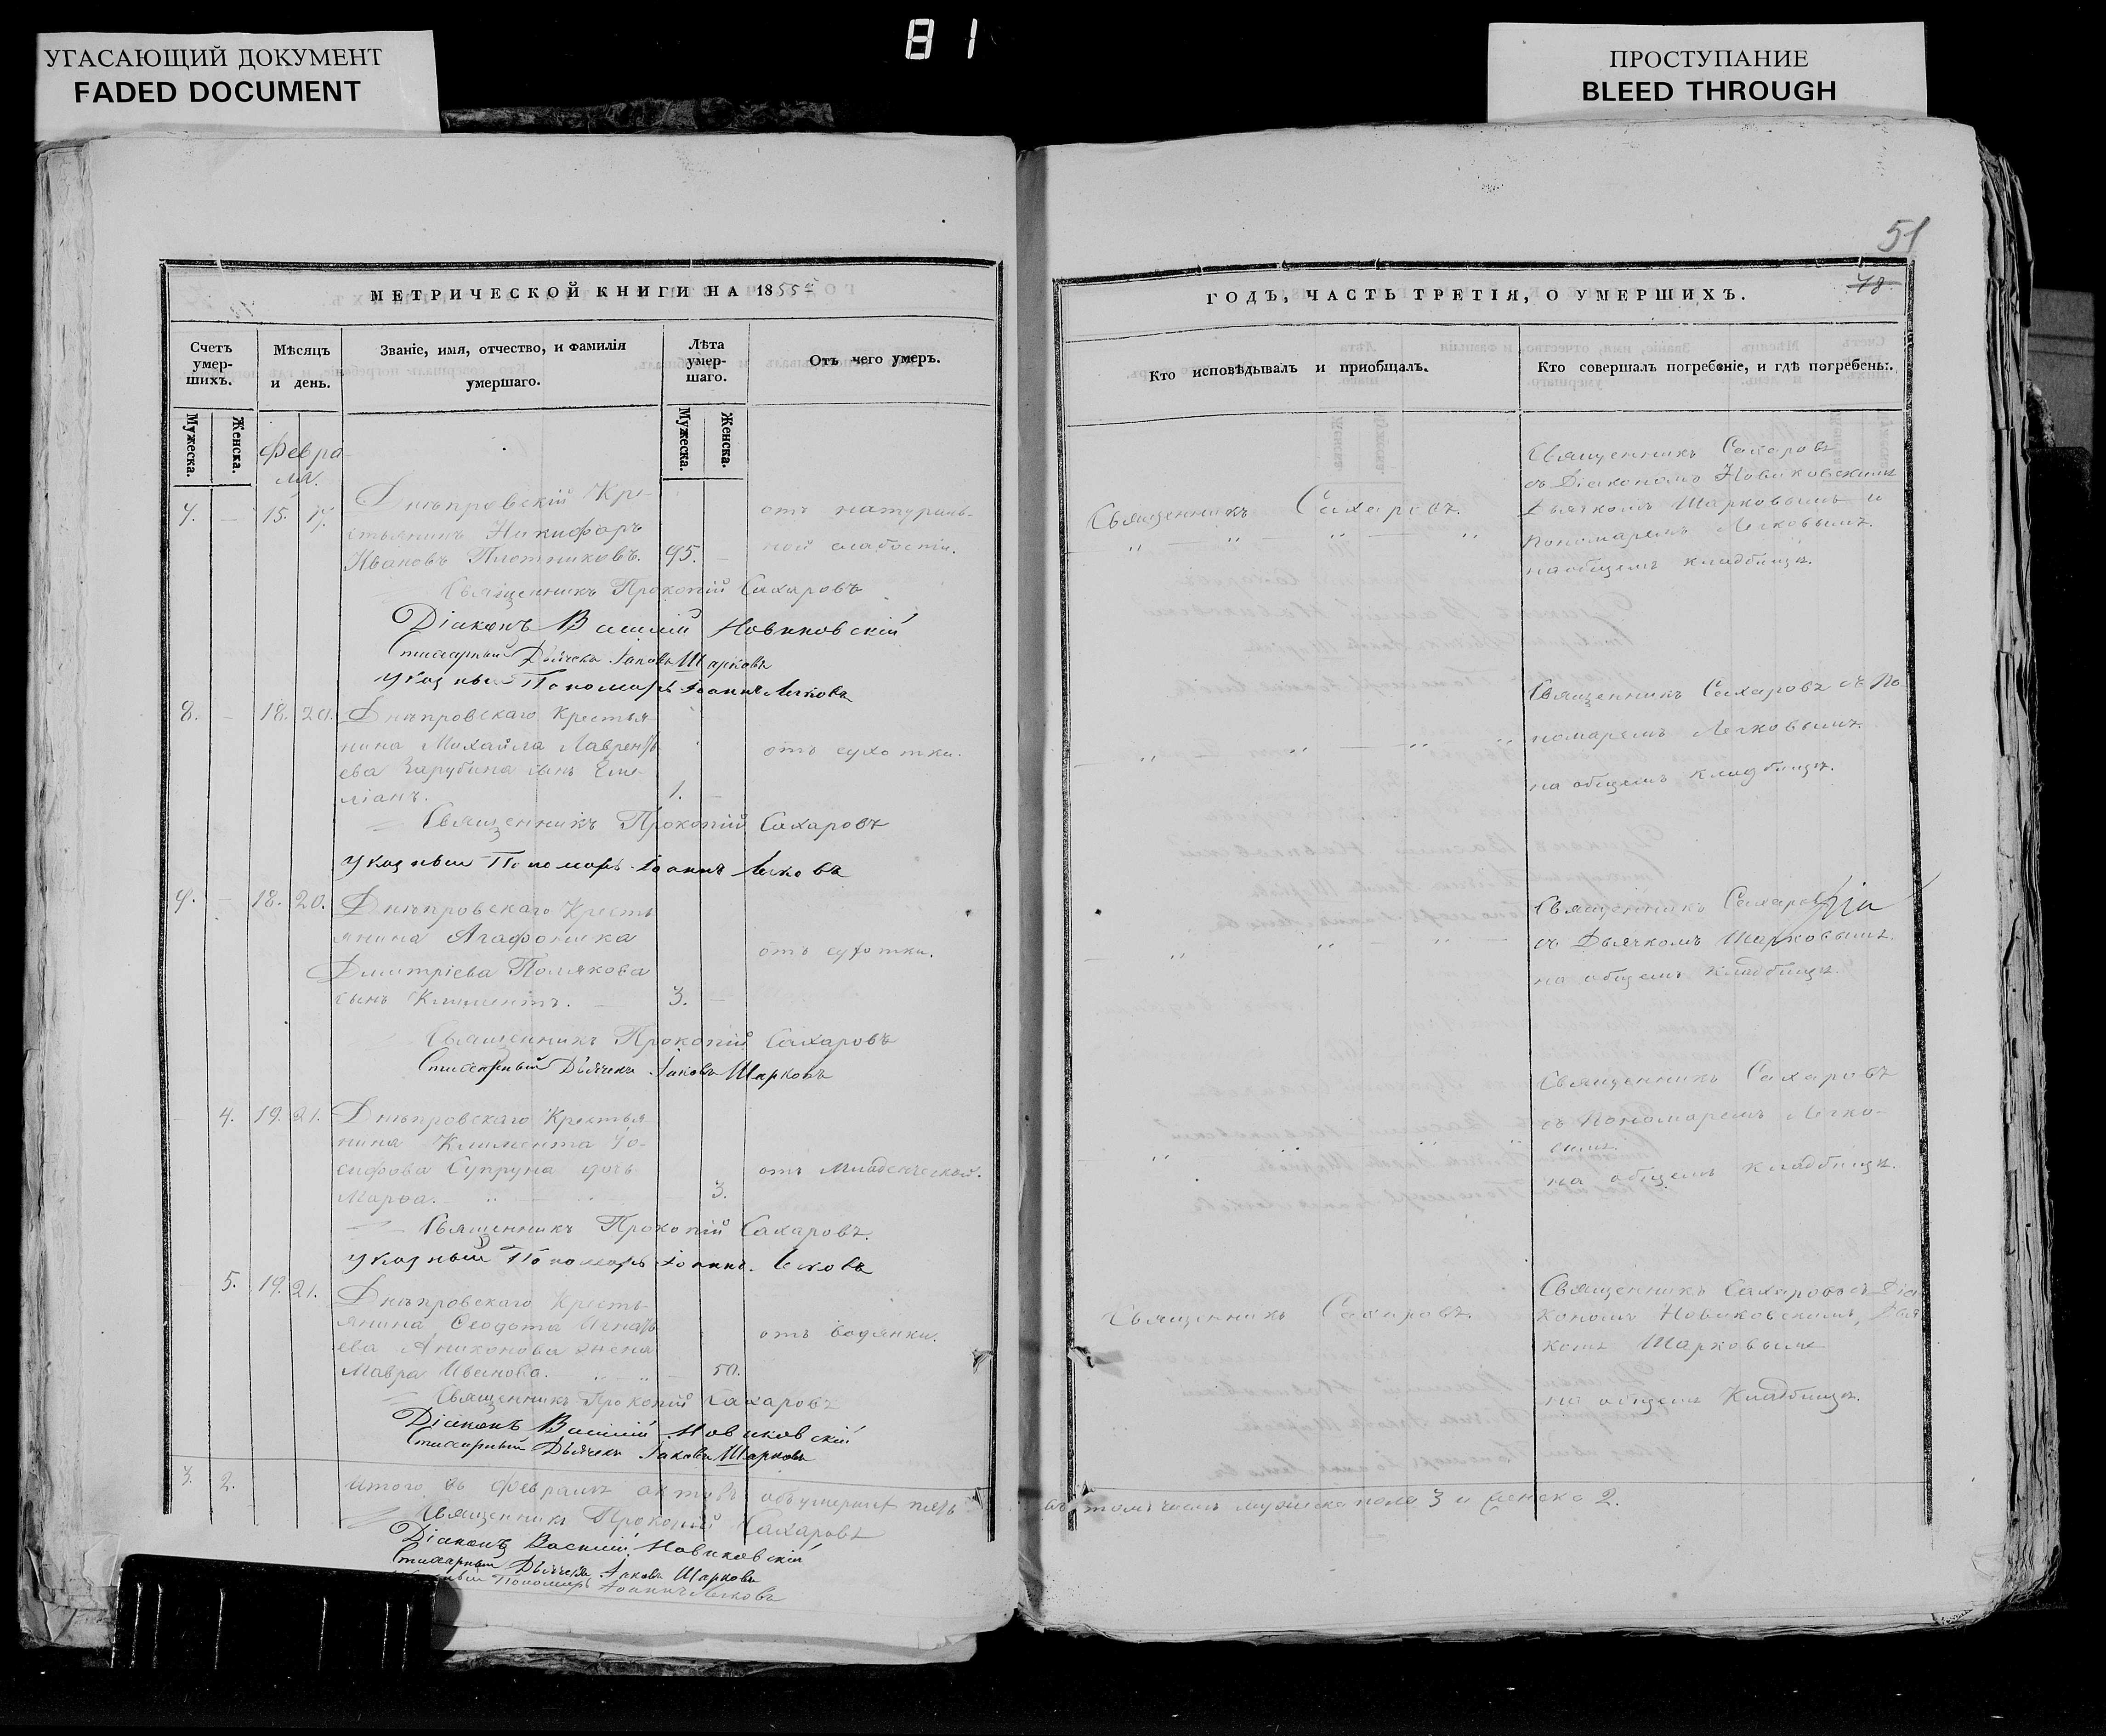 УГАСАЮЩИЙ ДОКУМЕНТ
FADED DOCUMENT
81
ПРОСТУПАНИЕ
BLEED THROUGH
МЕТРИЧЕСКОЙ КНИГИ НА 1855й
Счетъ умер-шихъ.
Мужеска.
Женска.
Мѣсяцъ и день.
Званіе, имя, отчество, и фамилія умершаго.
Лѣта умер-шаго.
Мужеска.
Женска.
Отъ чего умеръ.
Февра-
ля.
7. — 15. 17.
Днѣпровскій Кре-
стьянинъ Никифоръ
Ивановъ Плотниковъ. 95. —
отъ натураль-
ной слабости.
Священникъ Прокопій Сахаровъ
Діаконъ Василій Новиковскій
Стихарный Дьячекъ Іаковъ Шарковъ
Указный Пономарь Іоаннъ
8. — 18. 20.
Днѣпровскаго Крестья
нина Михайла Лаврентъ
ева Зарубина сынъ Еми-
ліанъ. 1. —
отъ сухотки.
Священникъ Прокопій Сахаровъ
Указный Пономарь Іоаннъ
9. — 18. 20.
Днѣпровскаго Кресть
янина Агафоника
Димитріева Полякова
сынъ Климентъ. — 3. —
отъ сухотки.
Священникъ Прокопій Сахаровъ
Стихарный Дьячекъ Іаковъ Шарковъ
— 4. 19. 21.
Днѣпровскаго Крестья
нина Климента Іо-
сифова Супруна дочь
Марѳа. 3.
отъ младенческой.
Священникъ Прокопій Сахаровъ.
Указный Пономарь Іоаннъ
— 5. 19. 21.
Днѣпровскаго Кресть
янина Ѳеодота Игнатъ
ева жена
Мавра Иванова. 50.
отъ водянки.
Священникъ Прокопій Сахаровъ
Діаконъ Василій Новиковскій
Стихарный Дьячекъ Іаковъ Шарковъ
3. 2.
Итого въ Февралѣ актовъ объ умершихъ пять
Священникъ Прокопій Сахаровъ
Діаконъ Василій Новиковскій
Стихарный Дьячекъ Іаковъ Шарковъ
Пономарь Іоаннъ
51
78
ГОДЪ, ЧАСТЬ ТРЕТІЯ, О УМЕРШИХЪ.
Кто исповѣдывалъ и пріобщалъ.
Кто совершалъ погребеніе, и гдѣ погребены.
Священникъ Сахаровъ.
Священникъ Сахаровъ
съ Діакономъ Новиковскимъ
Дьячкомъ Шарковымъ и
Пономаремъ
на общемъ кладбищѣ.
Священникъ Сахаровъ съ По
номаремъ
на общемъ кладбищѣ.
Священникъ Сахаровъ
съ Дьячкомъ Шарковымъ.
на общемъ кладбищѣ.
Священникъ Сахаровъ
съ Пономаремъ
вымъ.
на общемъ кладбищѣ.
Священникъ Сахаровъ.
Священникъ Сахаровъ съ Діа
кономъ Новиковскимъ, Дьяч
комъ Шарковымъ
на общемъ кладбищѣ.
въ томъ числѣ мужеска пола 3 и женска 2.